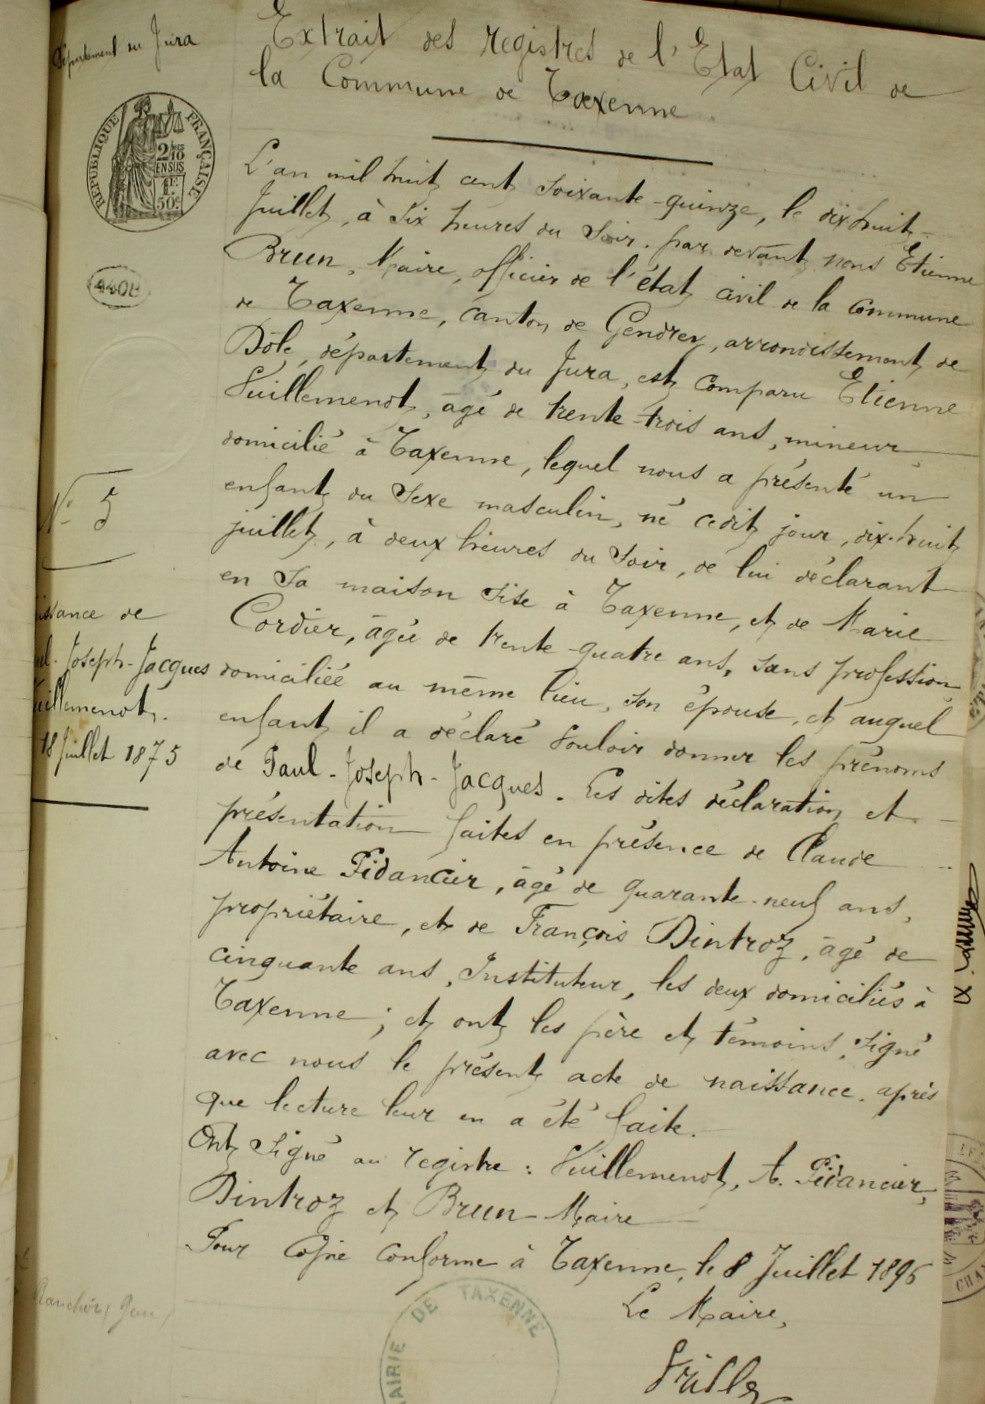 Département du Jura
Extrait des registres de l'Etat Civil de
la Commune de Taxenne
RÉPUBLIQUE FRANÇAISE
2/10
EN SUS
1F.
50c.
L'an mil huit cent soixante-quinze, le dix huit
Juillet, à six heures du soir, par devant nous Etienne
Brun, Maire, officier de l'état civil de la Commune
de Taxenne, canton de Gendrey, arrondissement de
Dôle, département du Jura, est comparu Etienne
Vuillemenot, âgé de trente-trois ans, mineur
domicilié à Taxenne, lequel nous a présenté un
enfant du sexe masculin, né cedit jour, dix-huit
juillet, à deux heures du soir, de lui déclarant
en sa maison sise à Taxenne, et de Marie
Cordier, âgée de trente-quatre ans, sans profession,
domiciliée au même lieu, son épouse, et auquel
enfant il a déclaré vouloir donner les prénoms
de Paul-Joseph-Jacques. Les dites déclaration et
présentation faites en présence de Claude
Antoine Pidancier, âgé de quarante-neuf ans,
propriétaire, et de François Dintroz, âgé de
cinquante ans, Instituteur, les deux domiciliés à
Taxenne ; et ont les père et témoins, signé
avec nous le présent acte de naissance, après
que lecture leur en a été faite.
Ont signé au registre : Vuillemenot, A. Pidancier,
Dintroz et Brun Maire
Pour copie conforme à Taxenne, le 8 Juillet 1896
Le Maire,
N° 5
issance de
ul-Joseph-Jacques
uillemenot.
18 Juillet 1875
MAIRIE DE TAXENNE